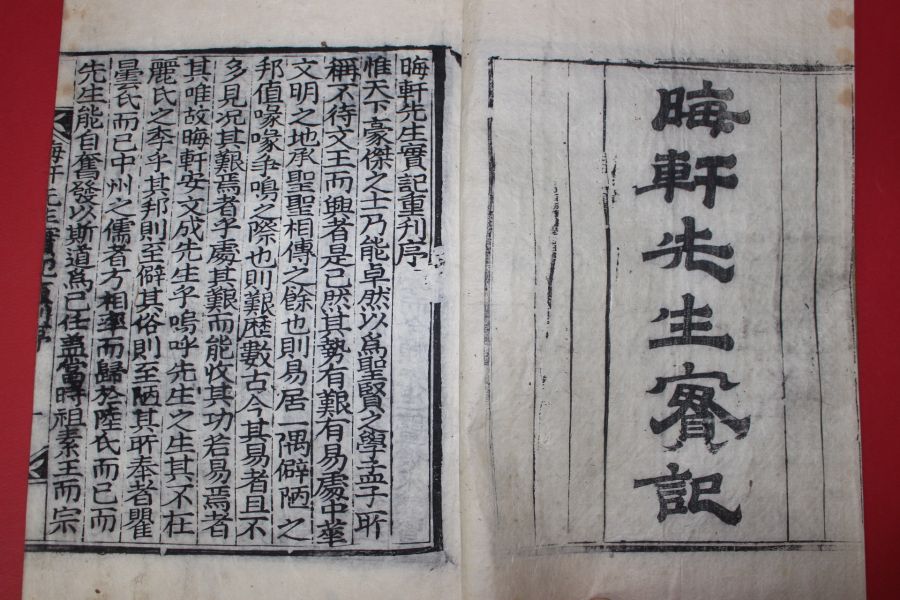 晦軒先生實記
晦軒先生實記重刋序
惟天下豪傑之士乃能卓然以爲聖賢之學孟子所
稱不待文王而興者是已然其勢有艱有易處中華
文明之地承聖聖相傳之餘也則易居一隅僻陋之
邦値喙喙爭鳴之際也則艱歷數古今其易者且不
多見况其艱焉者乎處其艱而能收其功若易焉者
其唯故晦軒安文成先生乎嗚呼先生之生其不在
麗氏之季乎其邦則至僻其俗則至陋其所奉者瞿
曇氏而已中州之儒者方相率而歸於陸氏而已而
先生能自奮發以斯道爲己任蓋當時祖素王而宗
晦軒先生實記 序